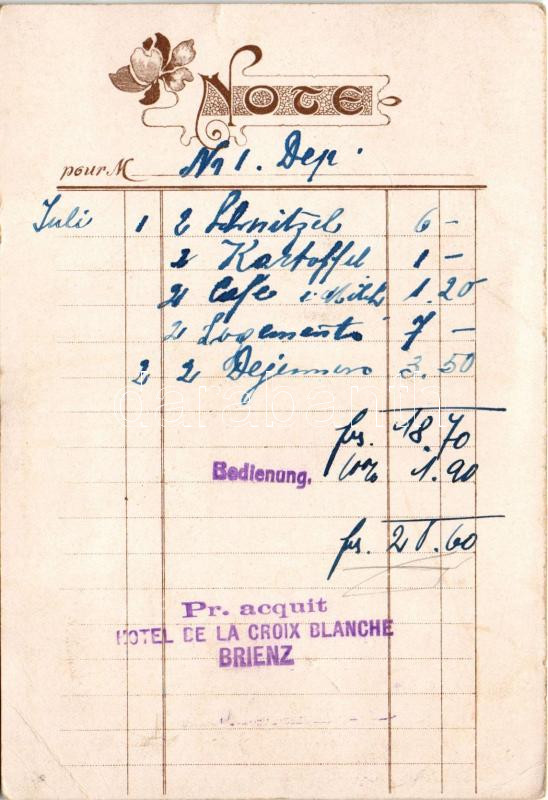 NOTE
pour M No 1. Dep.
Juli 1 2 Schnitzel 6 –
2 Kartoffel 1 –
2 Cafe Milch 1.20
2 Logements 7 –
2 2 Dejeuners 3.50
frs. 18.70
Bedienung, 10% 1.90
frs. 20.60
Pr. acquit
HOTEL DE LA CROIX BLANCHE
BRIENZ